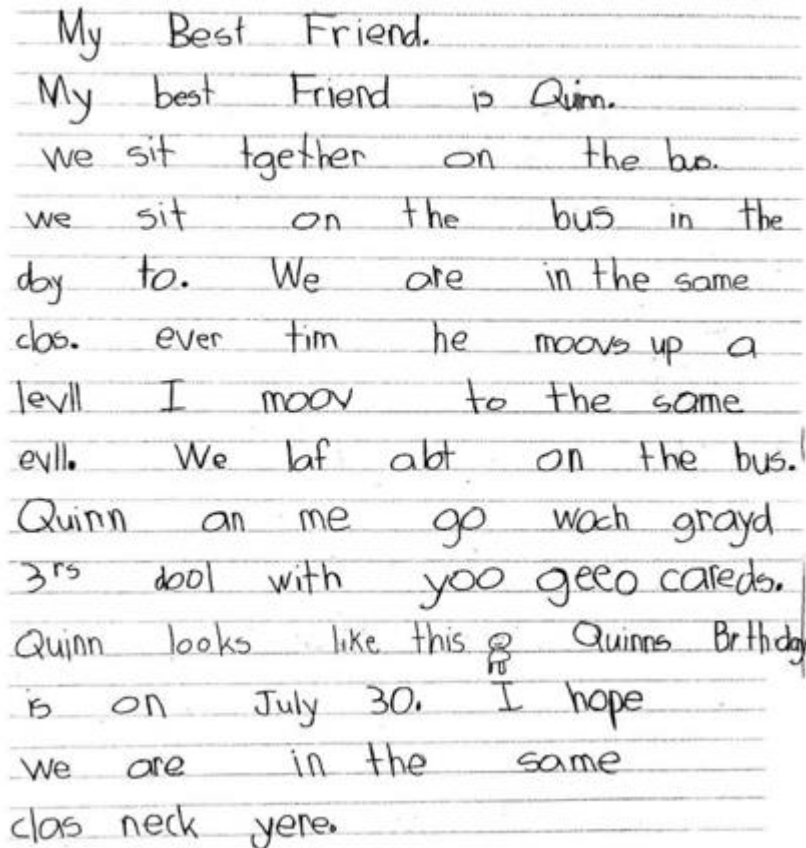 My Best Friend.
My best Friend is Quinn.
we sit tgether on the bus.
we sit on the bus in the
day to. We are in the same
clas. ever tim he moovs up a
levll I moov to the same
evll. We laf abt on the bus.
Quinn an me go woch grayd
3rs dool with yoo geeo careds.
Quinn looks like this Quinns Brthday
is on July 30. I hope
we are in the same
clas neck yere.